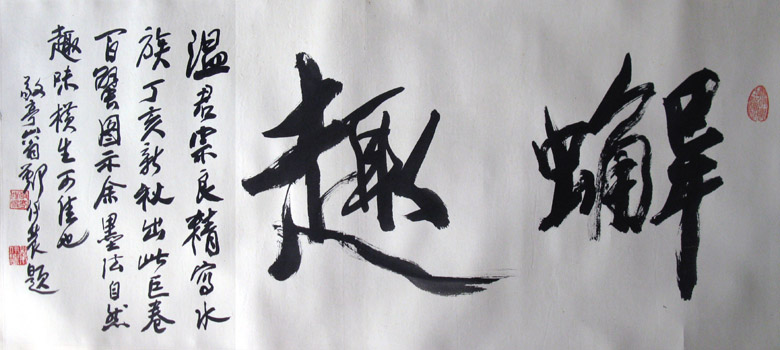 蠏趣
温君宗良精寫水
族丁亥新秋出此巨卷
百蟹圖示余墨法自然
趣味横生可佳也
敬亭山翁鄭伊農題